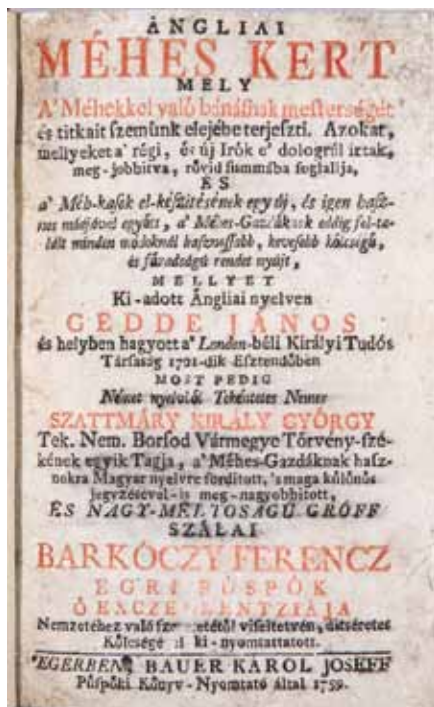 ÁNGLIAI
MÉHES KERT
MELY
A' Méhekkel való bánásnak mesterségét
és titkait szemünk elejébe terjeszti. Azokat,
mellyeket a' régi, és új Irók e' dologról irtak,
meg-jobbitva, rövid summába foglalja,
ÉS
a' Méh-kasok el-készitésének egy új, és igen hasz-
nos módjával együtt, a' Méhes-Gazdáknak eddig fel-ta-
lált minden módoknál hasznossabb, kevesebb költségű,
és fáradságú rendet nyújt,
MELLYET
Ki-adott Ángliai nyelven
GEDDE JÁNOS
és helyben hagyott a' London-béli Királyi Tudós
Társaság 1701-dik Esztendőben
MOST PEDIG
Német nyelvből Tekéntetes Nemes
SZATTMÁRY KIRÁLY GYÖRGY
Tek. Nem. Borsod Vármegye Törvény-szé-
kének egyik Tagja, a' Méhes-Gazdáknak hasz-
nokra Magyar nyelvre forditott, 's maga különös
jegyzésével-is meg-nagyobbitott,
ÉS NAGY-MÉLTOSÁGÚ GRÓFF
SZALAI
BARKÓCZY FERENCZ
EGRI PÜSPÖK
Ő EXCZELLENTZIÁJA
Nemzetéhez való szeretetétől viseltetvén, ditséretes
Költségével ki-nyomtattatott.
EGERBEN, BAUER KAROL JOSEFF
Püspöki Könyv-Nyomtató által 1759.